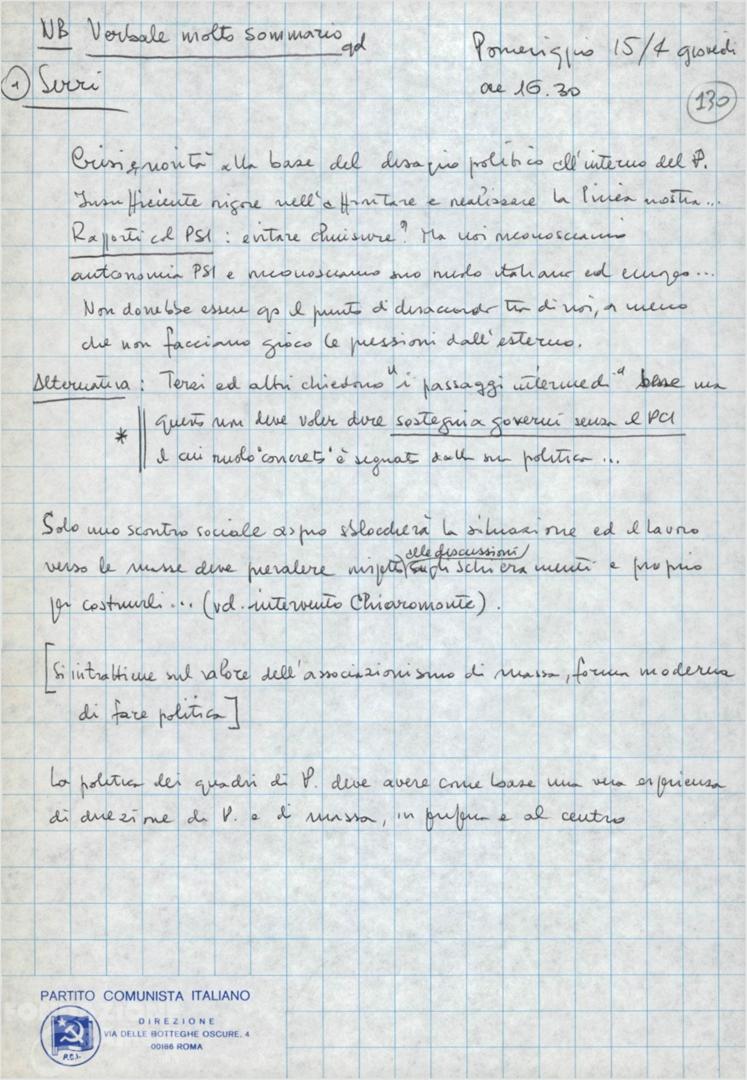 NB Verbale molto sommario gd
Pomeriggio 15/4 giovedì
ore 16.30
130
1 Serri
alla base del disagio politico all'interno del P.
Insufficiente rigore nell'affrontare e realizzare la linea nostra...
Rapporti col PSI : evitare chiusure? Ma noi riconosciamo
autonomia PSI e riconosciamo suo ruolo italiano ed europeo...
Non dovrebbe essere qs il punto di disaccordo tra di noi, a meno
che non facciano gioco le pressioni dall'esterno.
Alternativa : Terzi ed altri chiedono "i passaggi intermedi" ma
* questo non deve voler dire sostegni a governi senza il PCI
il cui ruolo "concreto" è segnato dalla sua politica...
Solo uno scontro sociale aspro sbloccherà la situazione ed il lavoro
verso le masse deve prevalere rispetto alle discussioni sugli schieramenti e proprio
per costruirli... (vd. intervento Chiaromonte).
[Si intrattiene sul valore dell'associazionismo di massa, forma moderna
di fare politica]
La politica dei quadri di P. deve avere come base una vera esperienza
di direzione di P. e di massa, in periferia e al centro
PARTITO COMUNISTA ITALIANO
DIREZIONE
VIA DELLE BOTTEGHE OSCURE, 4
00186 ROMA
P.C.I.